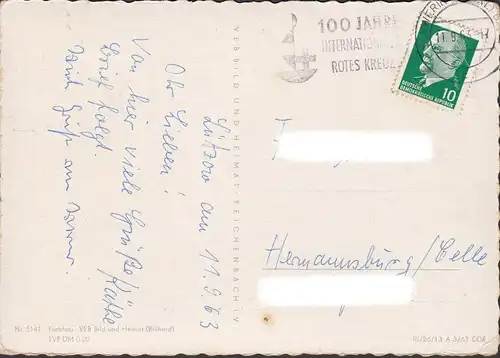 100 JAHRE
INTERNATIONALES
ROTES KREUZ
11.9.63
10
DEUTSCHE
DEMOKRATISCHE REPUBLIK
VEB BILD UND HEIMAT REICHENBACH I.V.
Lützow am 11.9.63
Ihr Lieben!
Von hier viele Grüße
Brief folgt.
Käthe
Hermannsburg/Celle
Nr. 5141 Farbfoto: VEB Bild und Heimat
EVP DM 0.20
DDR